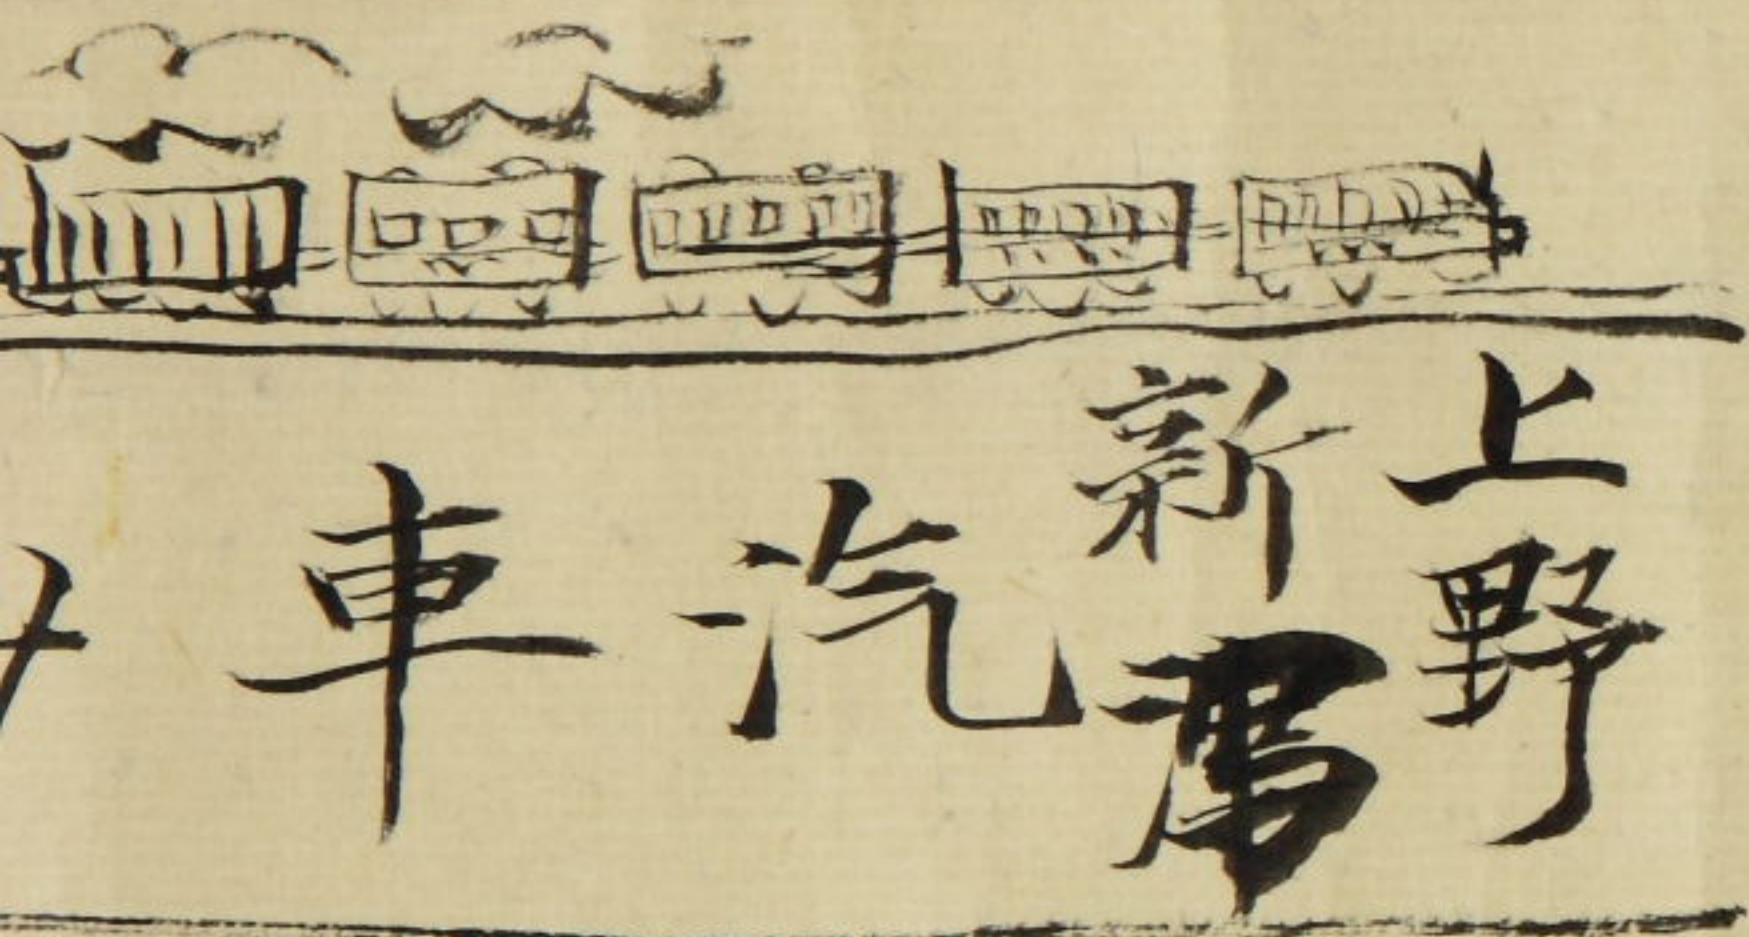 上野
新
汽車